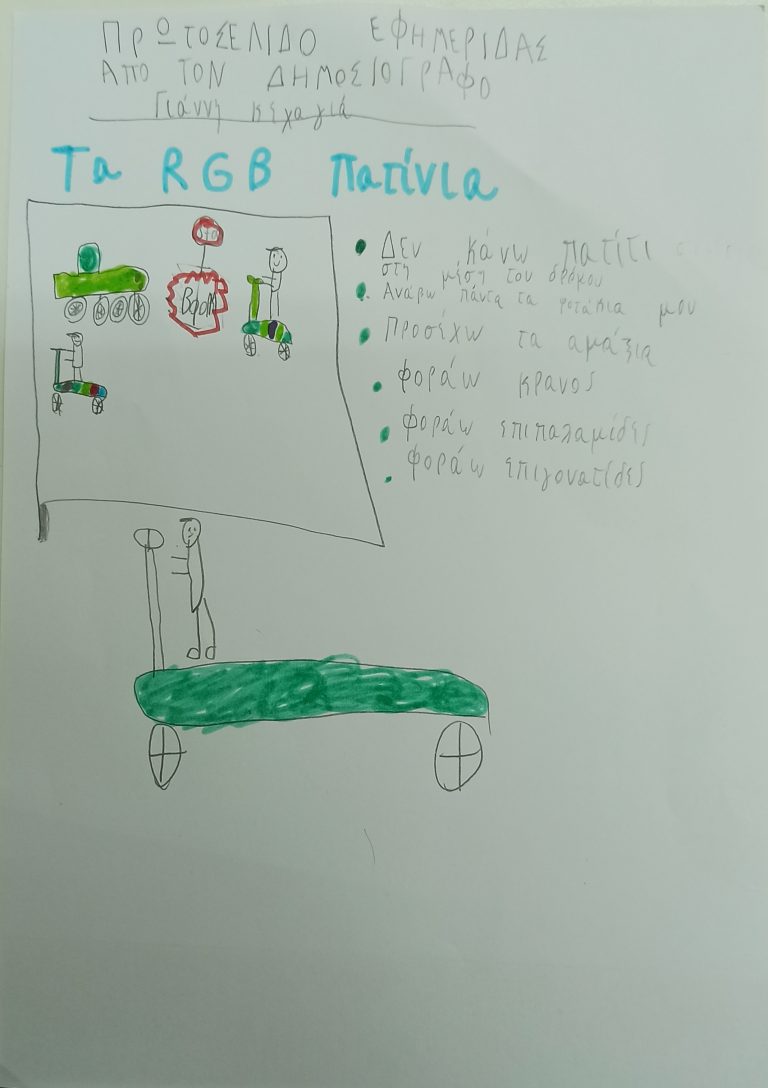 ΠΡΩΤΟΣΕΛΙΔΟ ΕΦΗΜΕΡΙΔΑΣ
ΑΠΟ ΤΟΝ ΔΗΜΟΣΙΟΓΡΑΦΟ
Γιάννη Κεχαγιά
Τα RGB πατίνια
Βοοm
• Δεν κάνω πατίτι
στη μέση του δρόμου
• Ανάβω πάντα τα φοτάκια μου
• Προσέχω τα αμάξια
• φοράω κρανος
• φοράω επιπαλαμίδες
• φοράω επιγονατίδες